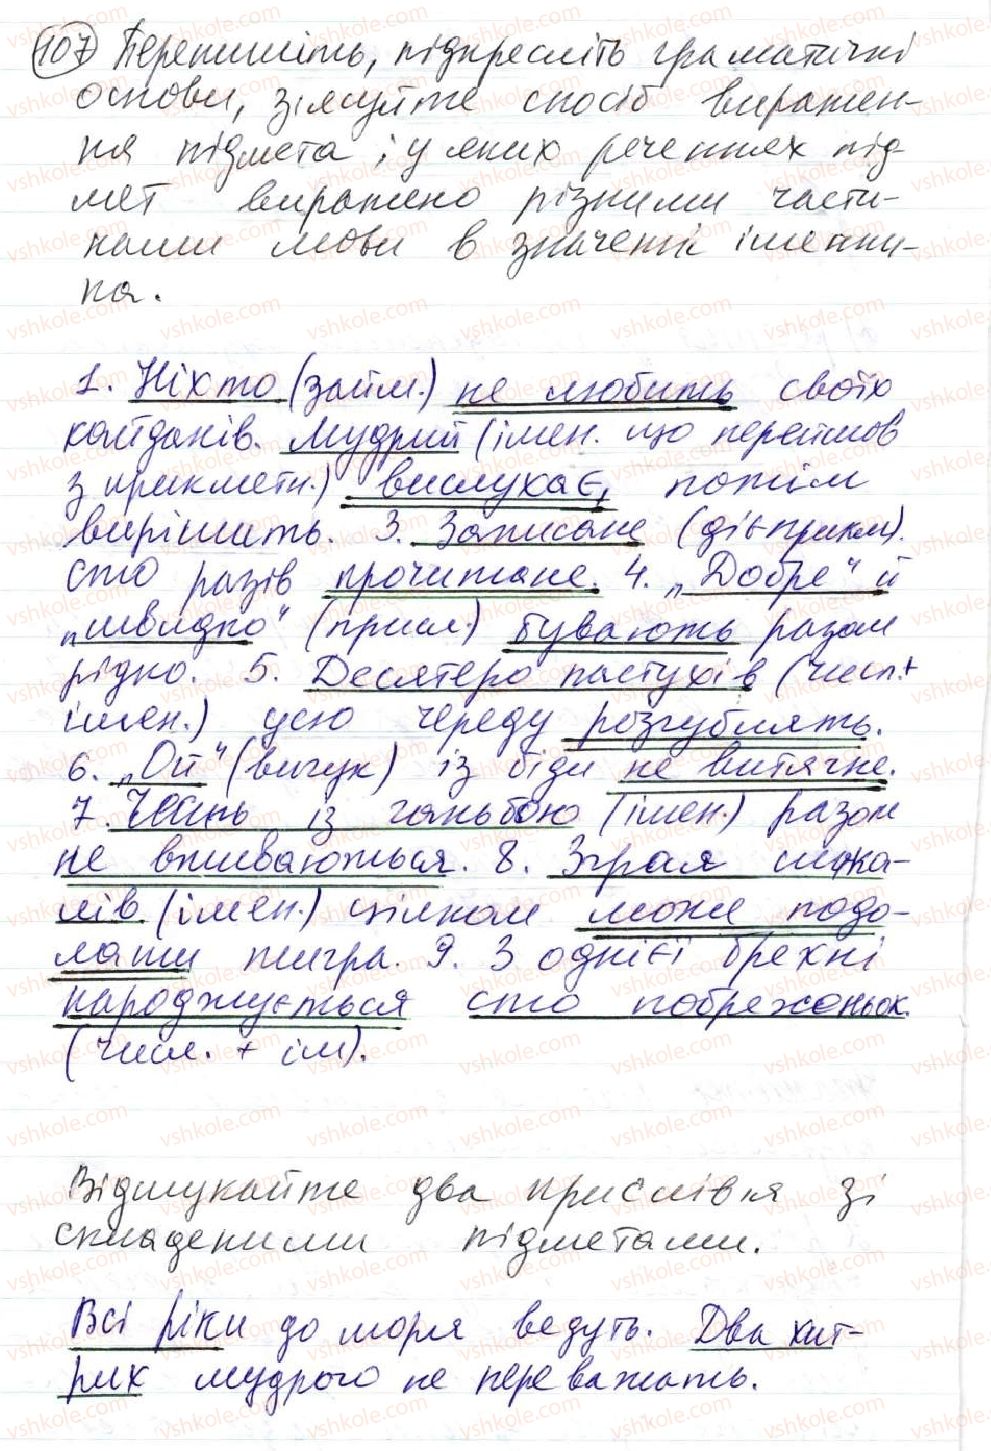 107 Перепишіть, підкресліть граматичні
основи, зʼясуйте спосіб виражен-
ня підмета; у яких реченнях під-
мет виражено різними части-
нами мови в значенні іменни-
ка.
1. Ніхто (займ.) не любить своїх
кайданів. Мудрий (імен. що перейшов
з прикметн.) вислухає, потім
вирішить. 3. Записане (дієприкм).
сто разів прочитане. 4. „Добре“ й
„швидко“ (присл.) бувають разом
рідко. 5. Десятеро пастухів (числ.+
імен.) усю череду розгублять.
6. „Ой“ (вигук) із біди не витягне.
7. Честь із ганьбою (імен.) разом
не вживаються. 8. Зграя шака-
лів (імен.) цілком може подо-
лати тигра. 9. З однієї брехні
народжується сто побрехеньок.
(числ. + ім).
Відшукайте два прислівʼя зі
складеними підметами.
Всі ріки до моря ведуть. Два хит-
рих мудрого не переважать.